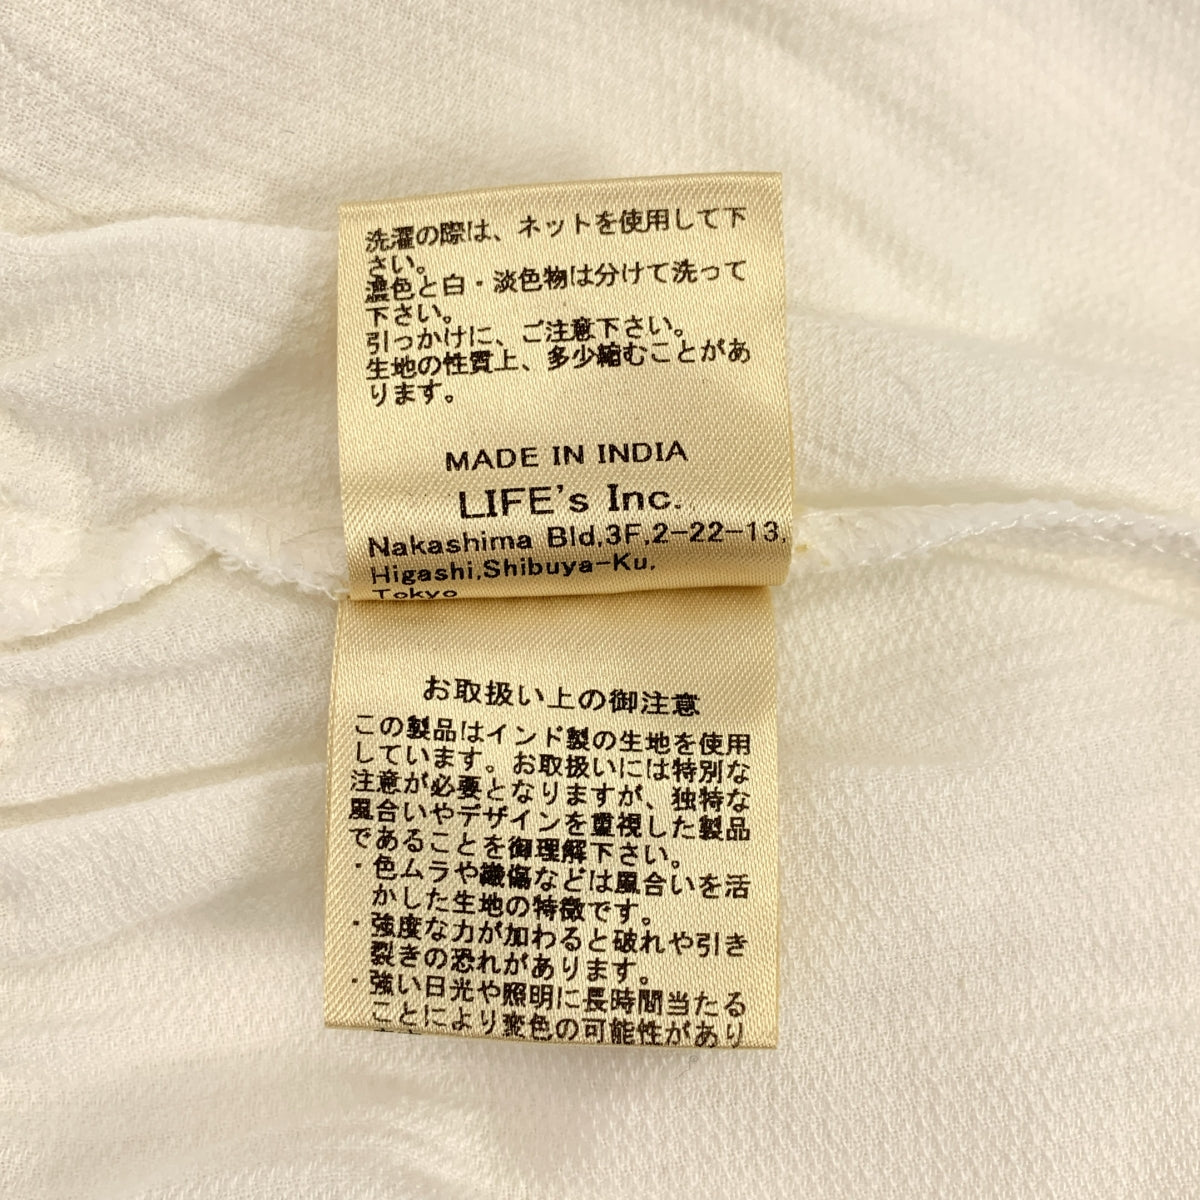 洗濯の際は、ネットを使用して下
さい。
濃色と白・淡色物は分けて洗って
下さい。
引っかけに、ご注意下さい。
生地の性質上、多少縮むことがあ
ります。
MADE IN INDIA
LIFE's Inc.
Nakashima Bld,3F,2-22-13,
Higashi,Shibuya-Ku,
Tokyo
お取扱い上の御注意
この製品はインド製の生地を使用
しています。お取扱いには特別な
注意が必要となりますが、独特な
風合いやデザインを重視した製品
であることを御理解下さい。
・色ムラや織傷などは風合いを活
かした生地の特徴です。
・強度な力が加わると破れや引き
裂きの恐れがあります。
・強い日光や照明に長時間当たる
ことにより変色の可能性があり